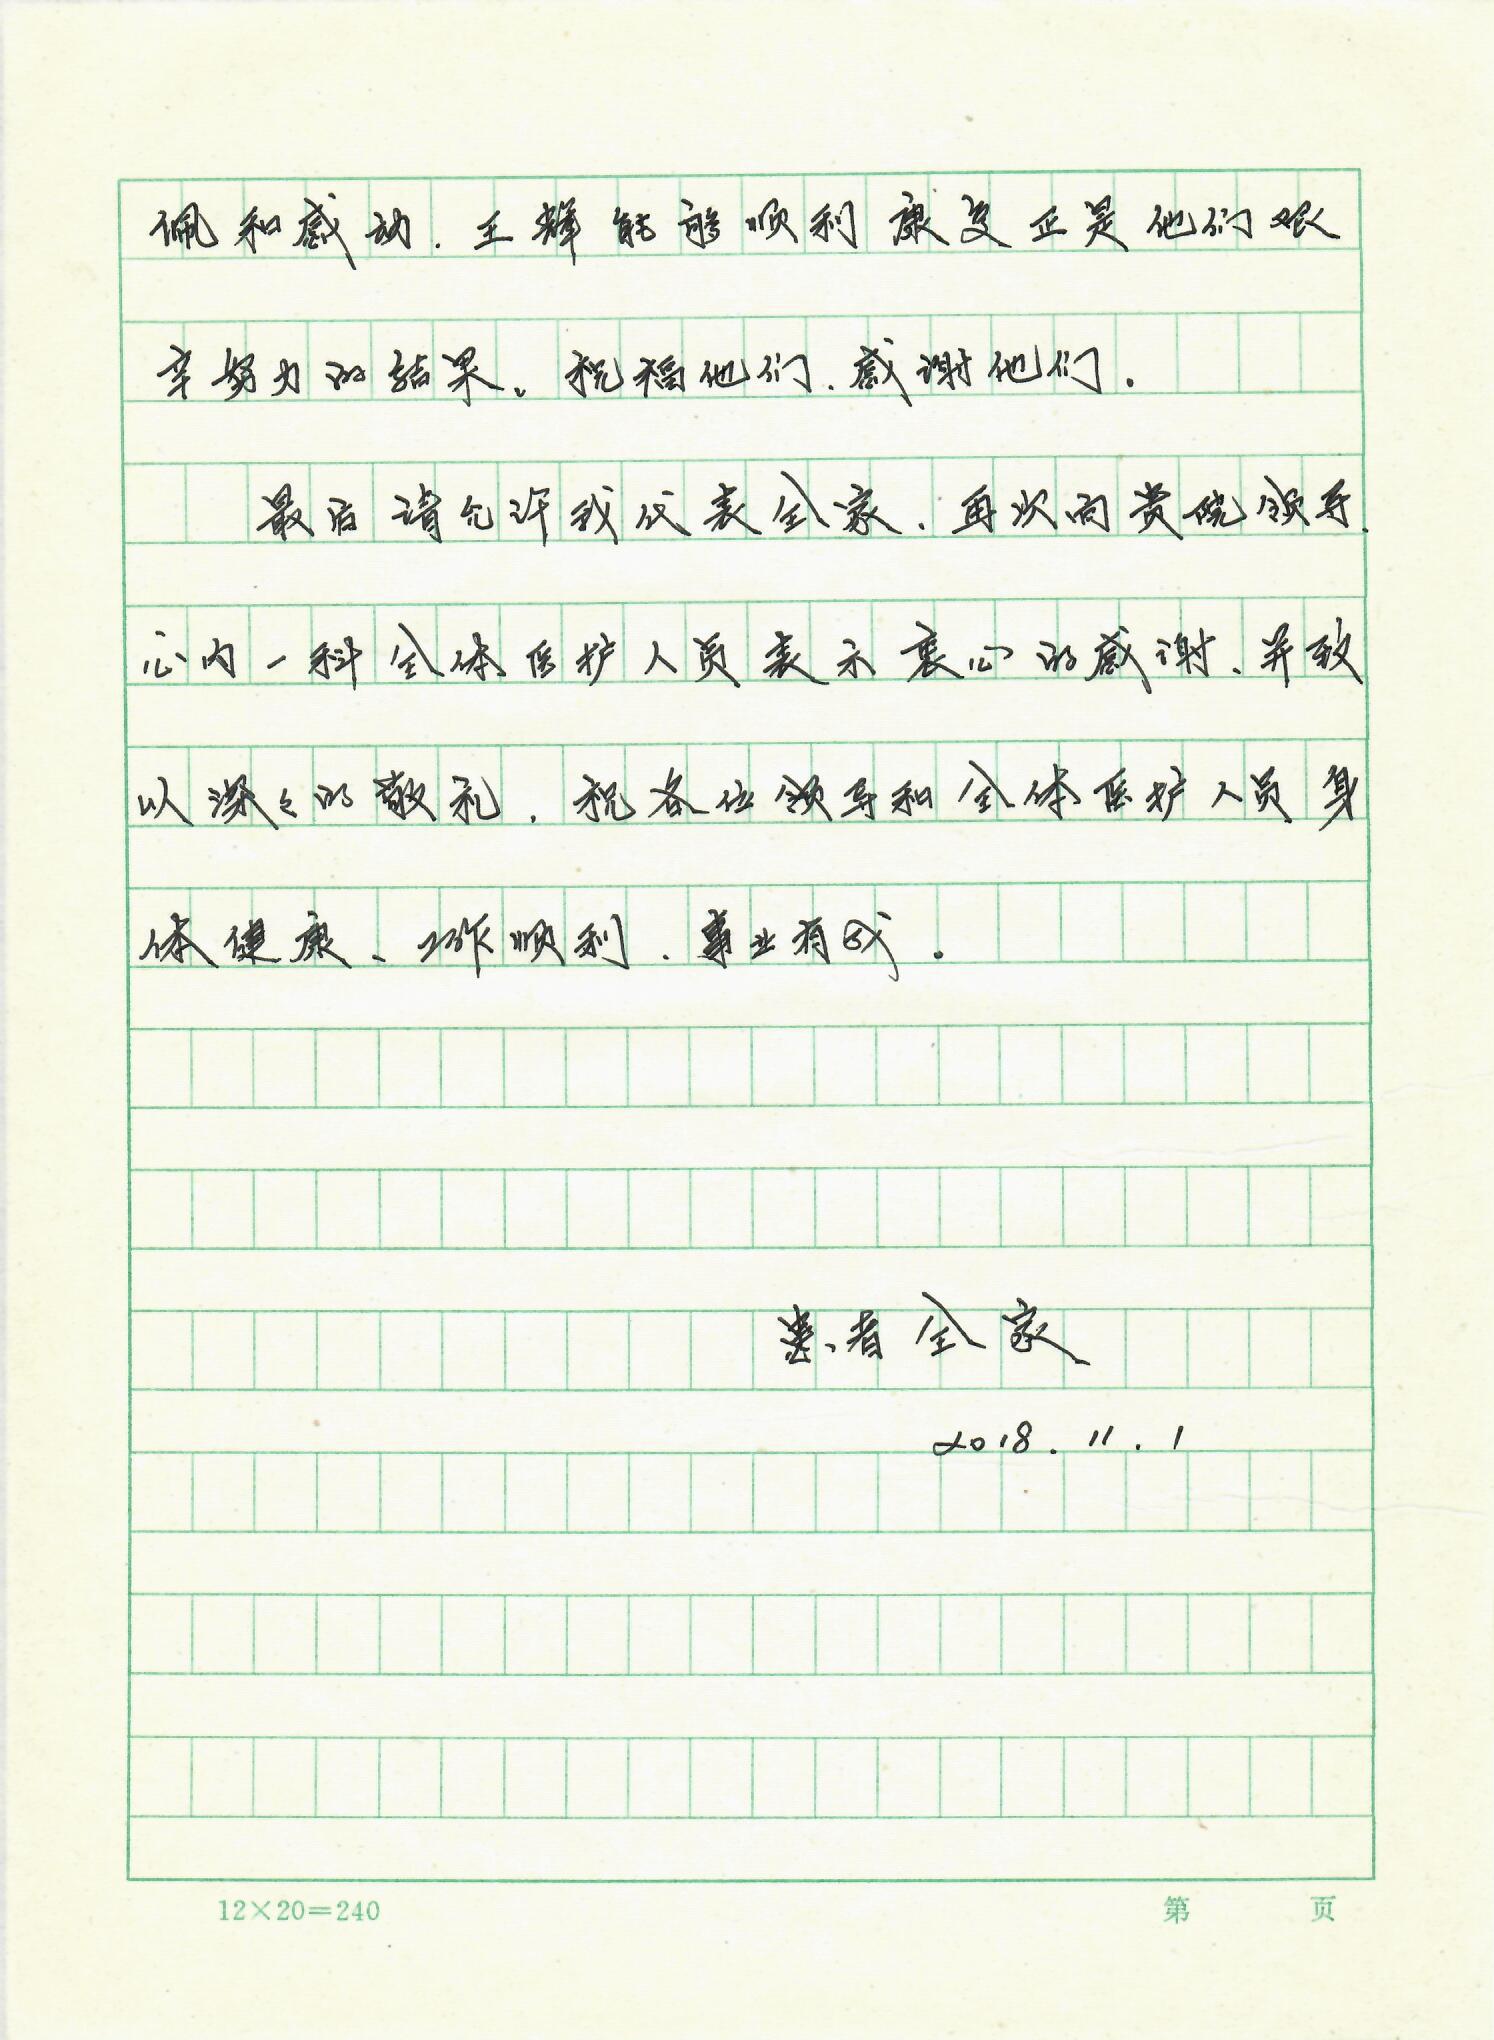 佩和感动.王辉能够顺利康复正是他们艰
辛努力的结果。祝福他们、感谢他们.
最后请允许我代表全家、再次向贵院领导、
心内一科全体医护人员表示衷心的感谢、并致
以深々的敬礼.祝各位领导和全体医护人员身
体健康、工作顺利、事业有成.
患者全家
2018.11.1
12×20=240 第 页